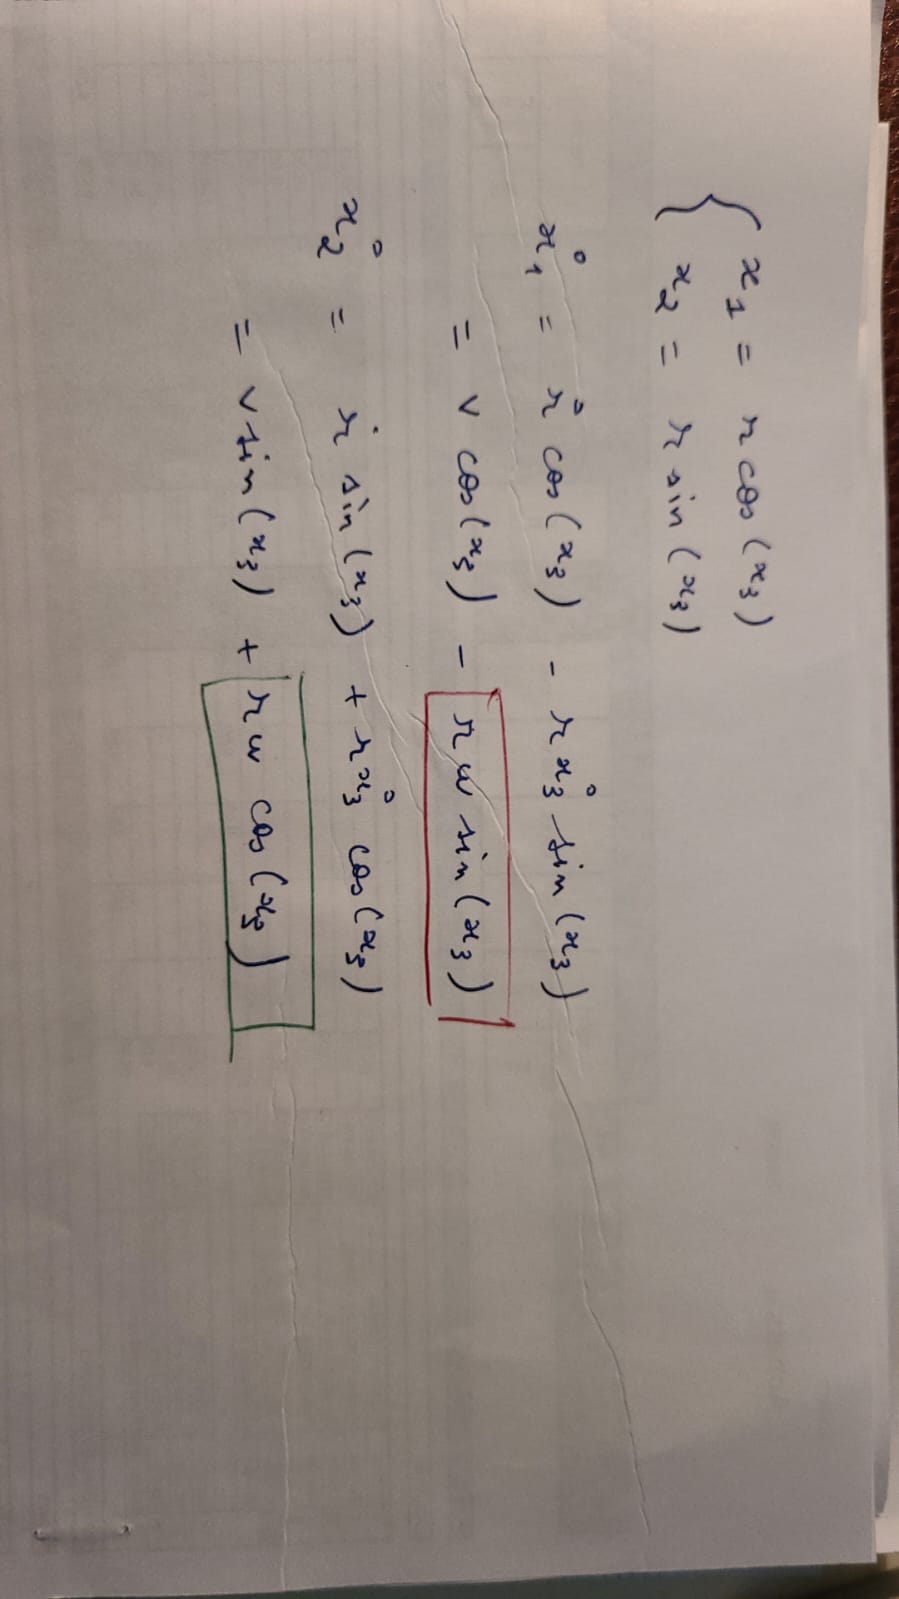 x₁ = r cos(x₃)
x₂ = r sin(x₃)
x₁° = r° cos(x₃) - r x₃° sin(x₃)
= v cos(x₃) - r w sin(x₃)
x₂° = ṙ sin(x₃) + r x₃° cos(x₃)
= v sin(x₃) + r w cos(x₃)